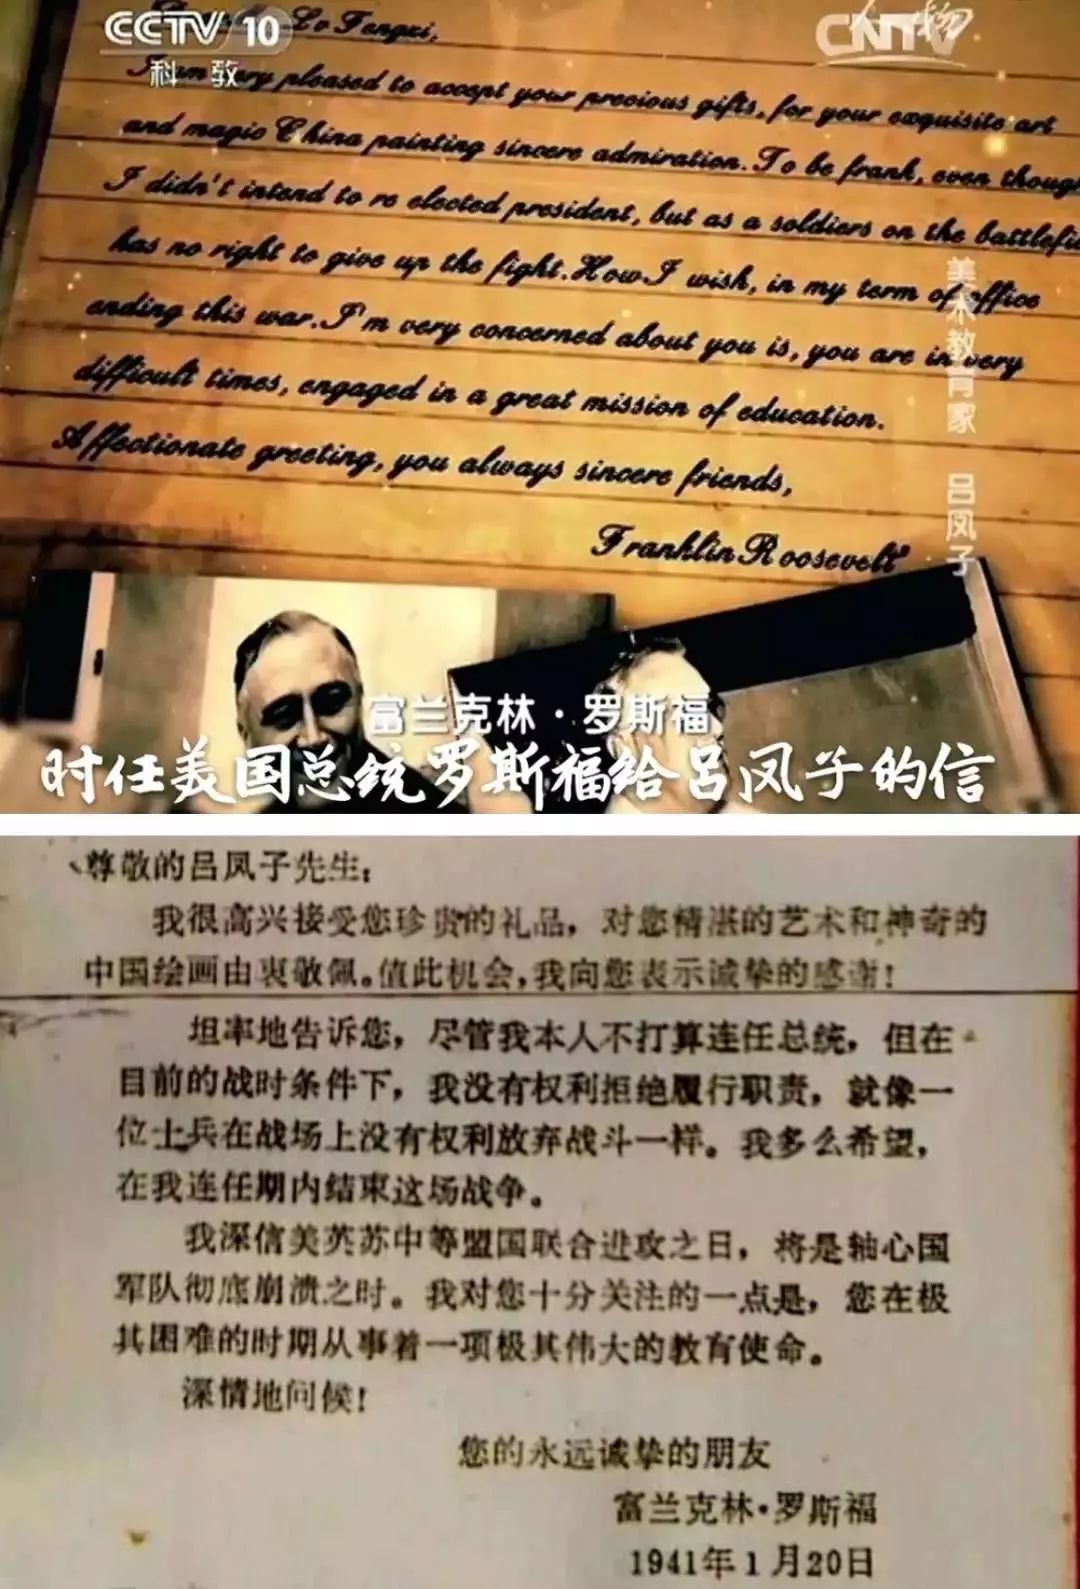 CCTV 10
科教
CNTV
人物
Lv Fengzi,
I am very pleased to accept your precious gifts, for your exquisite art
and magic China painting sincere admiration. To be frank, even though
I didn't intend to re elected president, but as a soldiers on the battlefi
has no right to give up the fight. How I wish, in my term of office
ending this war. I'm very concerned about you is, you are in very
difficult times, engaged in a great mission of education.
Affectionate greeting, you always sincere friends,
Franklin Roosevelt"
美术教育家 吕凤子
富兰克林·罗斯福
时任美国总统罗斯福给吕凤子的信
尊敬的吕凤子先生:
我很高兴接受您珍贵的礼品，对您精湛的艺术和神奇的
中国绘画由衷敬佩。值此机会，我向您表示诚挚的感谢!
坦率地告诉您，尽管我本人不打算连任总统，但在
目前的战时条件下，我没有权利拒绝履行职责，就像一
位士兵在战场上没有权利放弃战斗一样。我多么希望，
在我连任期内结束这场战争。
我深信美英苏中等盟国联合进攻之日，将是轴心国
军队彻底崩溃之时。我对您十分关注的一点是，您在极
其困难的时期从事着一项极其伟大的教育使命。
深情地问候!
您的永远诚挚的朋友
富兰克林·罗斯福
1941年1月20日